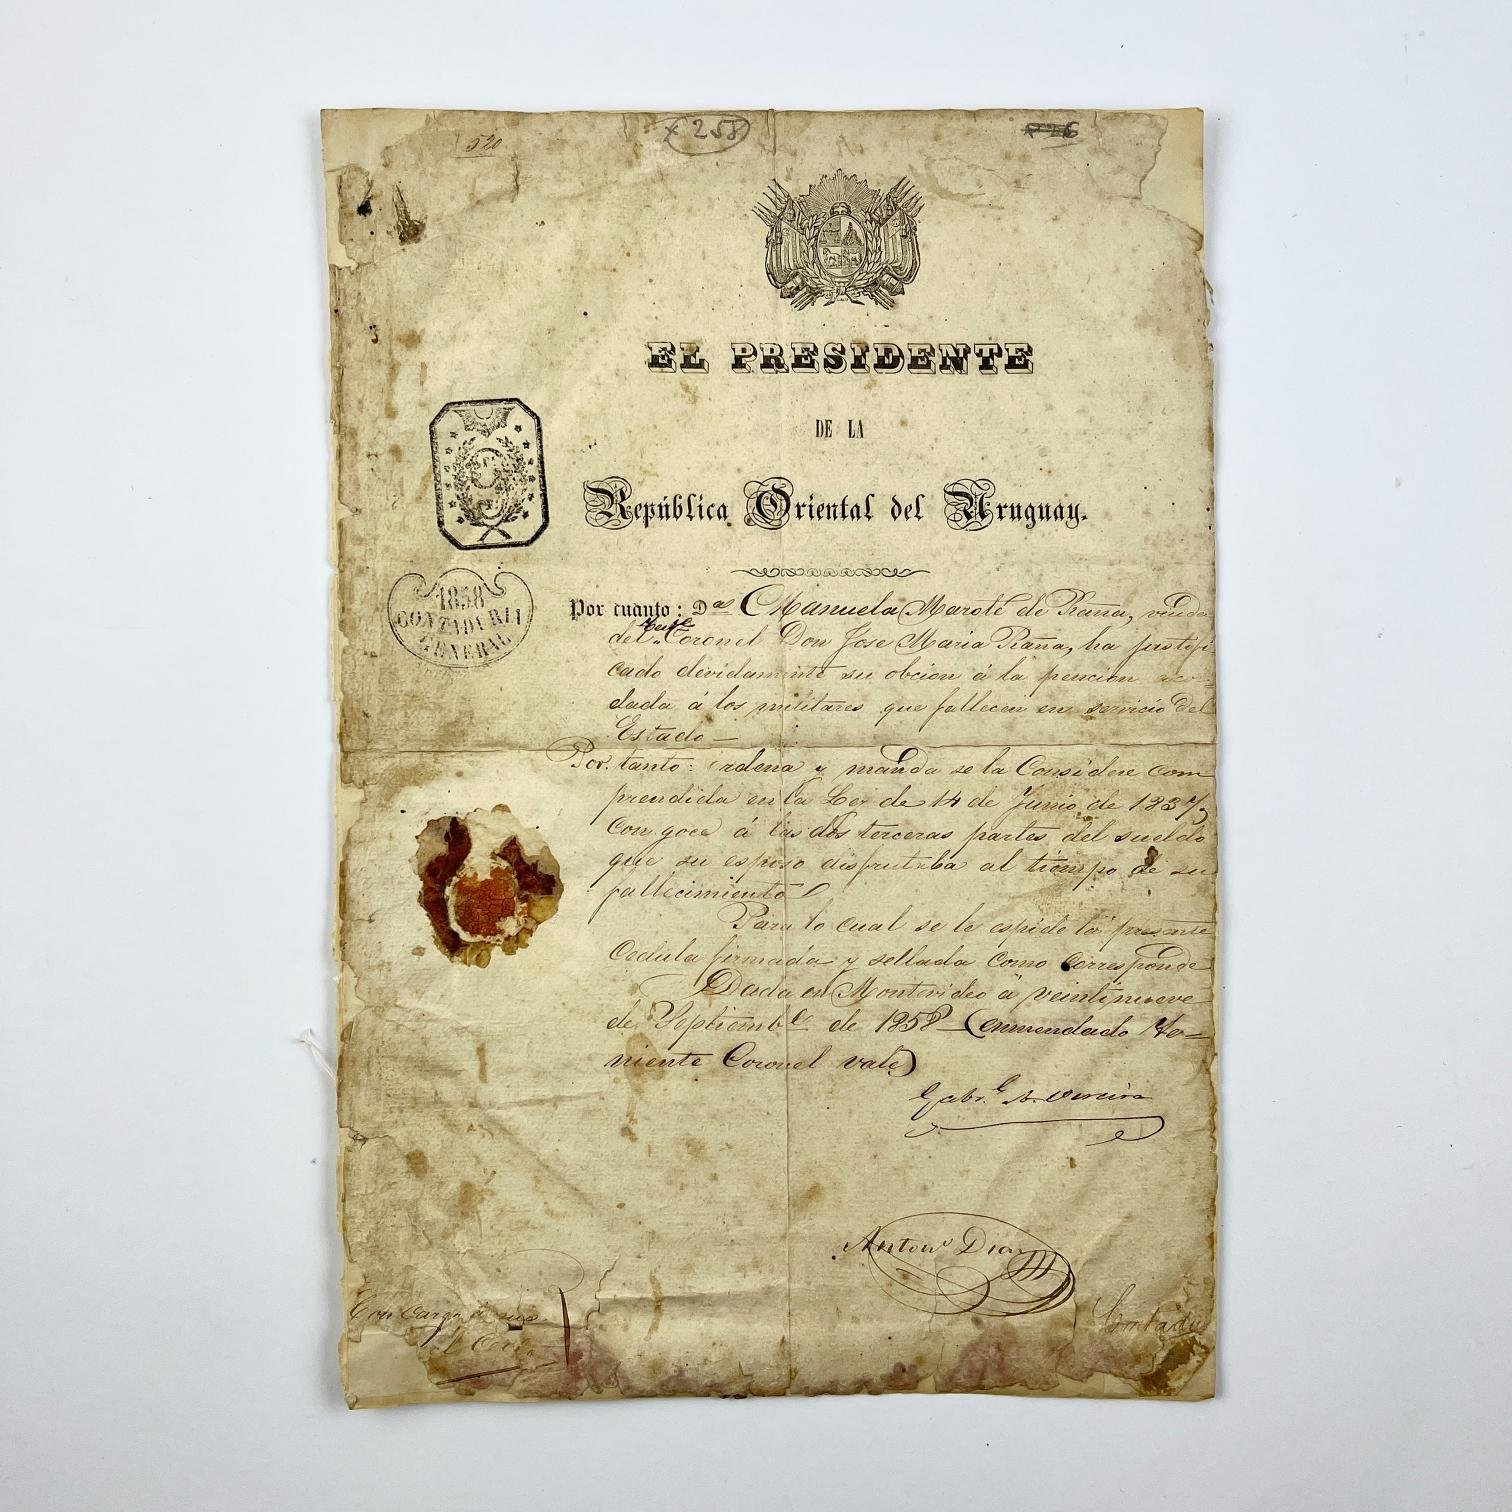 520
x 258
EL PRESIDENTE
DE LA
República Oriental del Uruguay.
1858
CONTADURIA
GENERAL
Por cuanto: Dª Manuela Marote de Raña, viuda
del Tente Coronel Don Jose Maria Raña, ha justifi
cado devidamente su obcion á la pencion
dada á los militares que fallecen en servicio del
Estado—
Por tanto: ordena y manda se la Considere com
prendida en la Ley de 14 de Junio de 1837,
con goce á las dos terceras partes del sueldo
que su esposo disfrutaba al tiempo de su
fallecimiento
Para lo cual se le espide la presente
Cedula firmada y sellada como corresponde
Dada en Montevideo á veintinueve
de Septiembe de 1858—(enmendado Te=
niente Coronel vale)
Gabrl A. Pereira
Antonº Diaz
Con cargo de